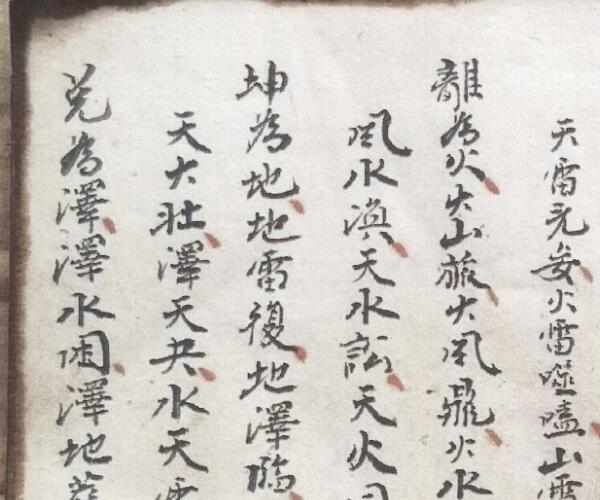 天雷无妄火雷噬嗑山雷
離為火火山旅火風鼎火水
風水渙天水訟天火同
坤為地地雷復地澤臨
天大壯澤天夬水天需
兌為澤澤水困澤地萃